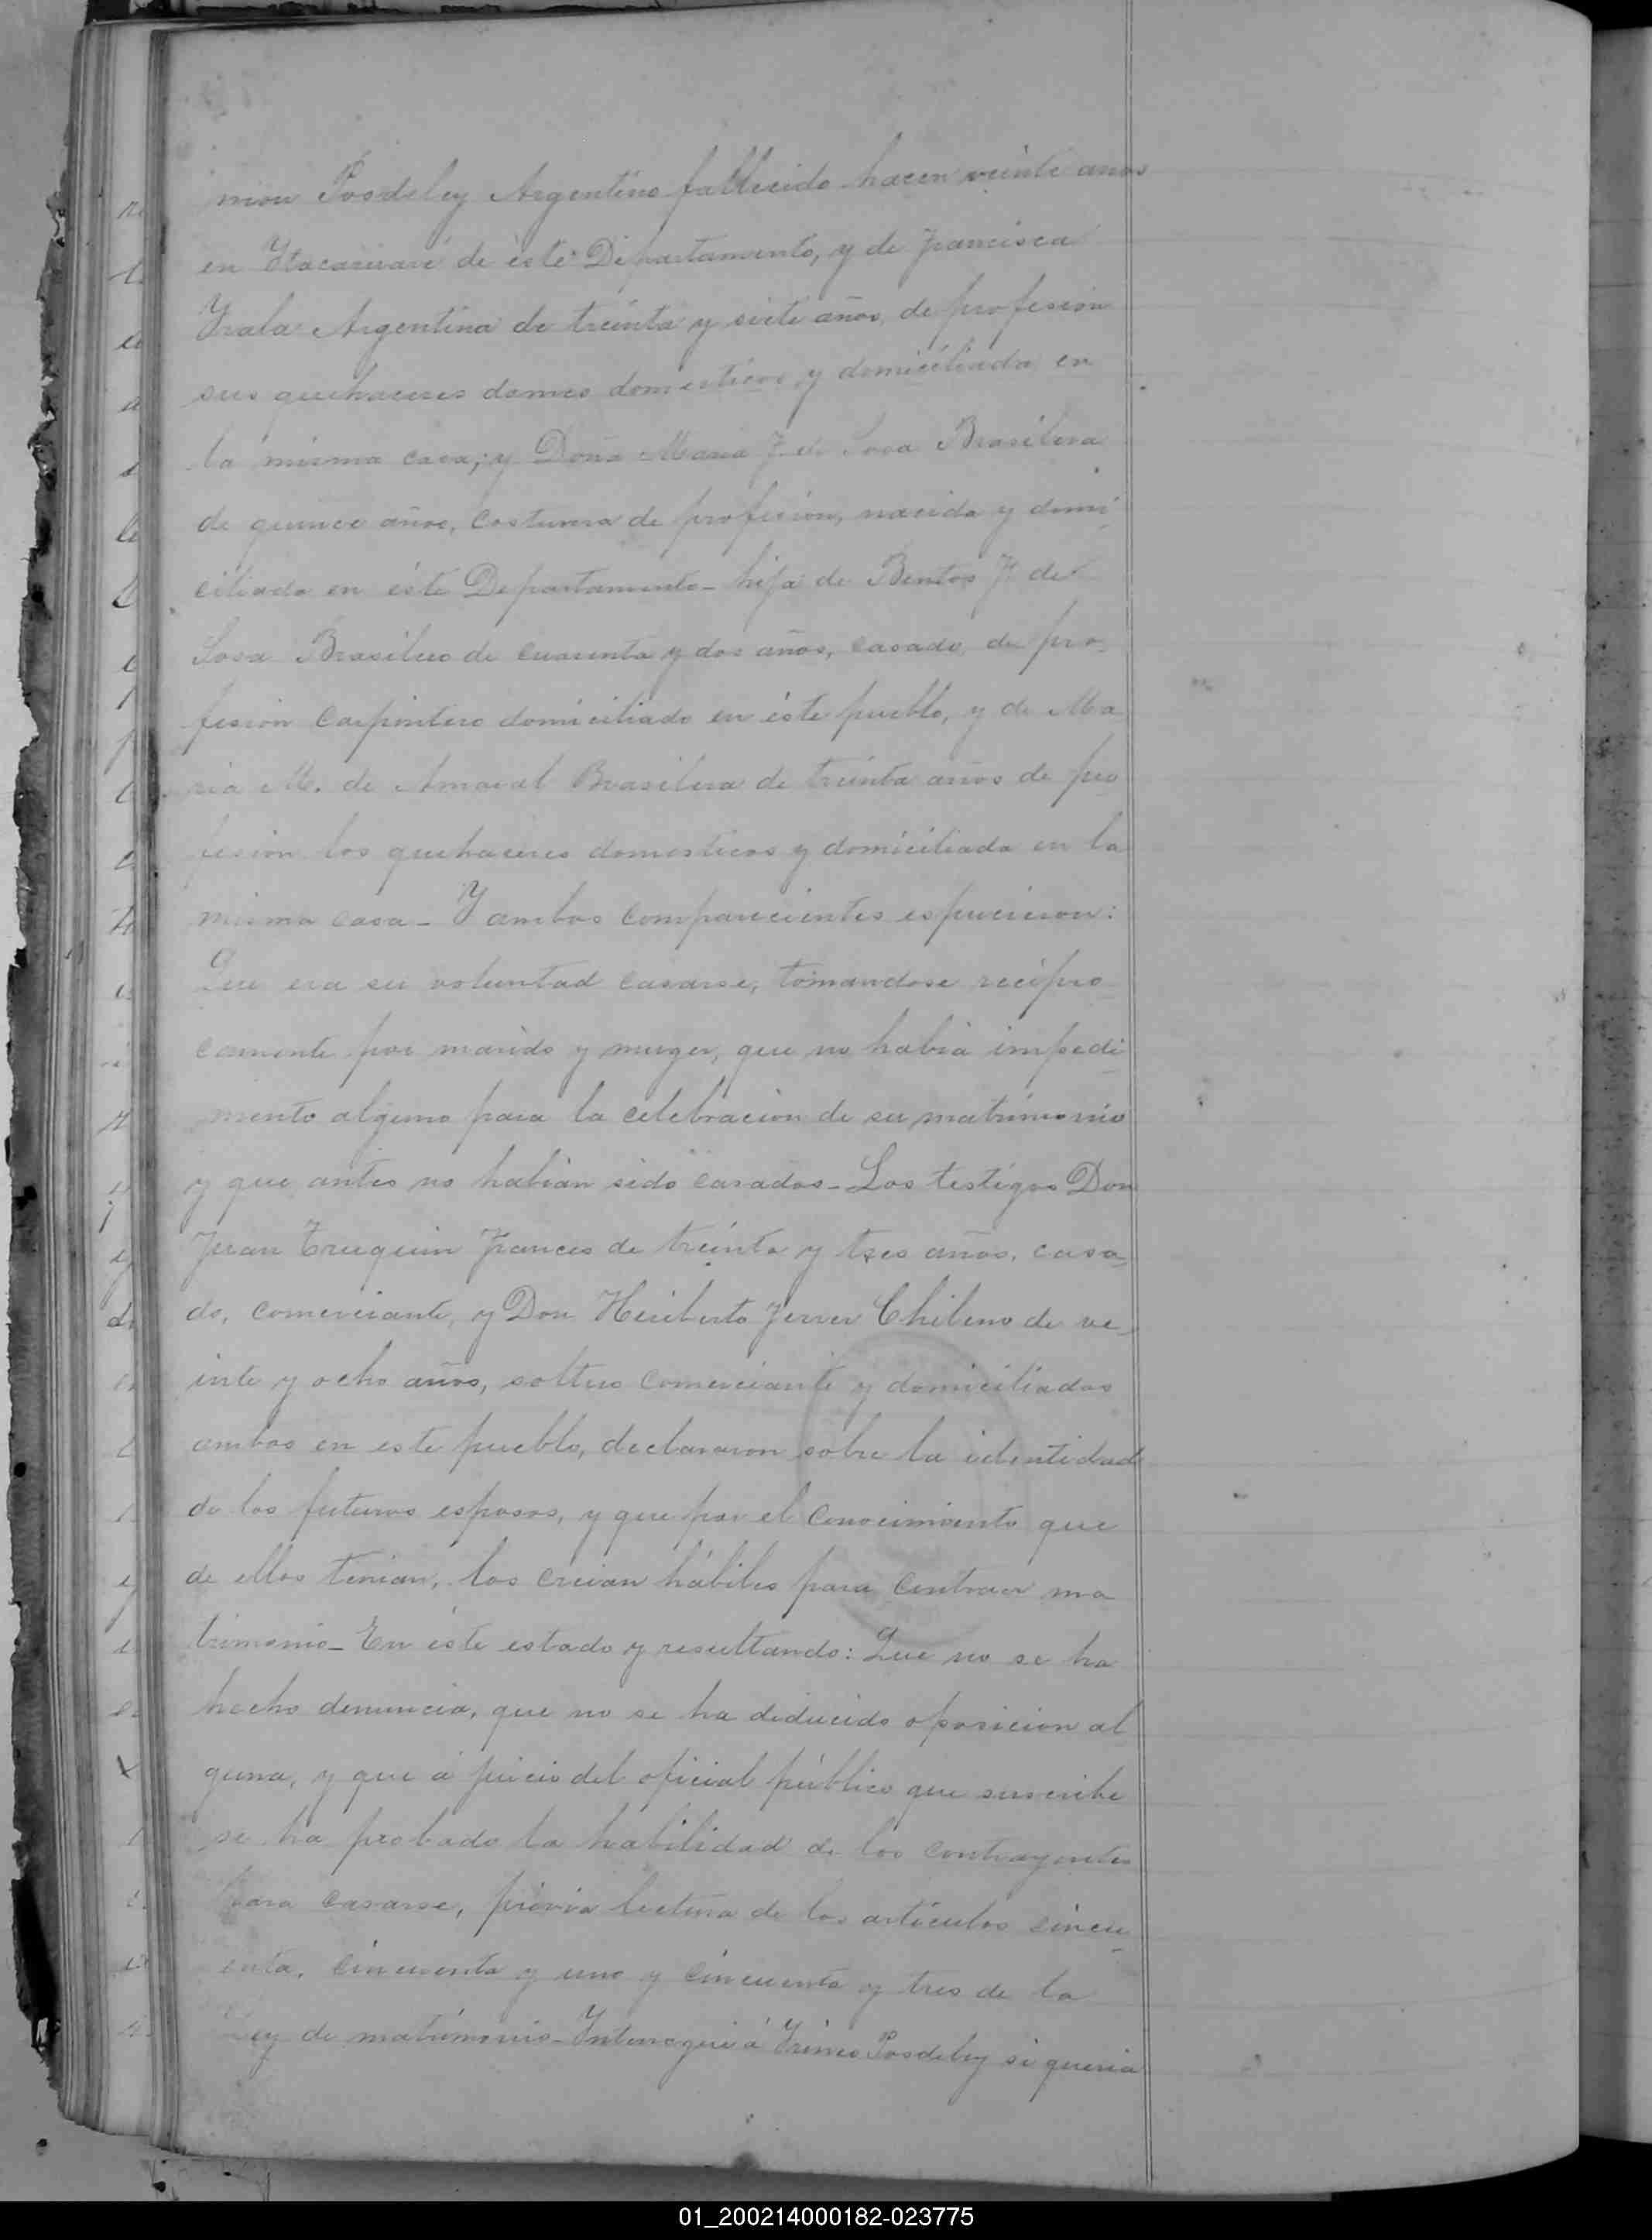 mon Posdeley Argentino fallecido hacen veinte anos
en Ytacaruaré de éste Departamento, y de Francisca
Yrala Argentina de treinta y siete años, de profesion
sus quehaceres domes domesticos y domiciliada en
la misma casa; y Doña Maria F. de Sosa Brasilera
de quince años, costurera de profesion, nacida y domi-
ciliada en éste Departamento - hija de Bentos F. de
Sosa Brasilero de cuarenta y dos años, casado, de pro-
fesion Carpintero domiciliado en éste pueblo, y de Ma
ria M. de Amaral Brasilera de treinta años de pro
fesion los quehaceres domesticos y domiciliada en la
misma casa - Y ambos comparecientes espusieron:
Que era su voluntad casarse, tomandose recipro-
camente por marido y muger, que no habia impedi-
mento alguno para la celebracion de su matrimonio
y que antes no habian sido casados - Los testigos Don
Juan Truquin Frances de treinta y tres años, casa-
do, comerciante, y Don Heriberto Ferrer Chileno de ve-
inte y ocho años, soltero comerciante y domiciliados
ambos en este pueblo, declararon sobre la identidad
de los futuros esposos, y que por el conocimiento que
de ellos tenian, los creian hábiles para contraer ma
trimonio - En éste estado y resultando: Que no se ha
hecho denuncia, que no se ha deducido oposicion al
guna, y que á juicio del oficial público que suscribe
se ha probado la habilidad de los contrayentes
para casarse, prévia lectura de los artículos cincu-
enta, cincuenta y uno y cincuenta y tres de la
Ley de matrimonio - Interrogué á Irineo Posdeley si queria
01_200214000182-023775